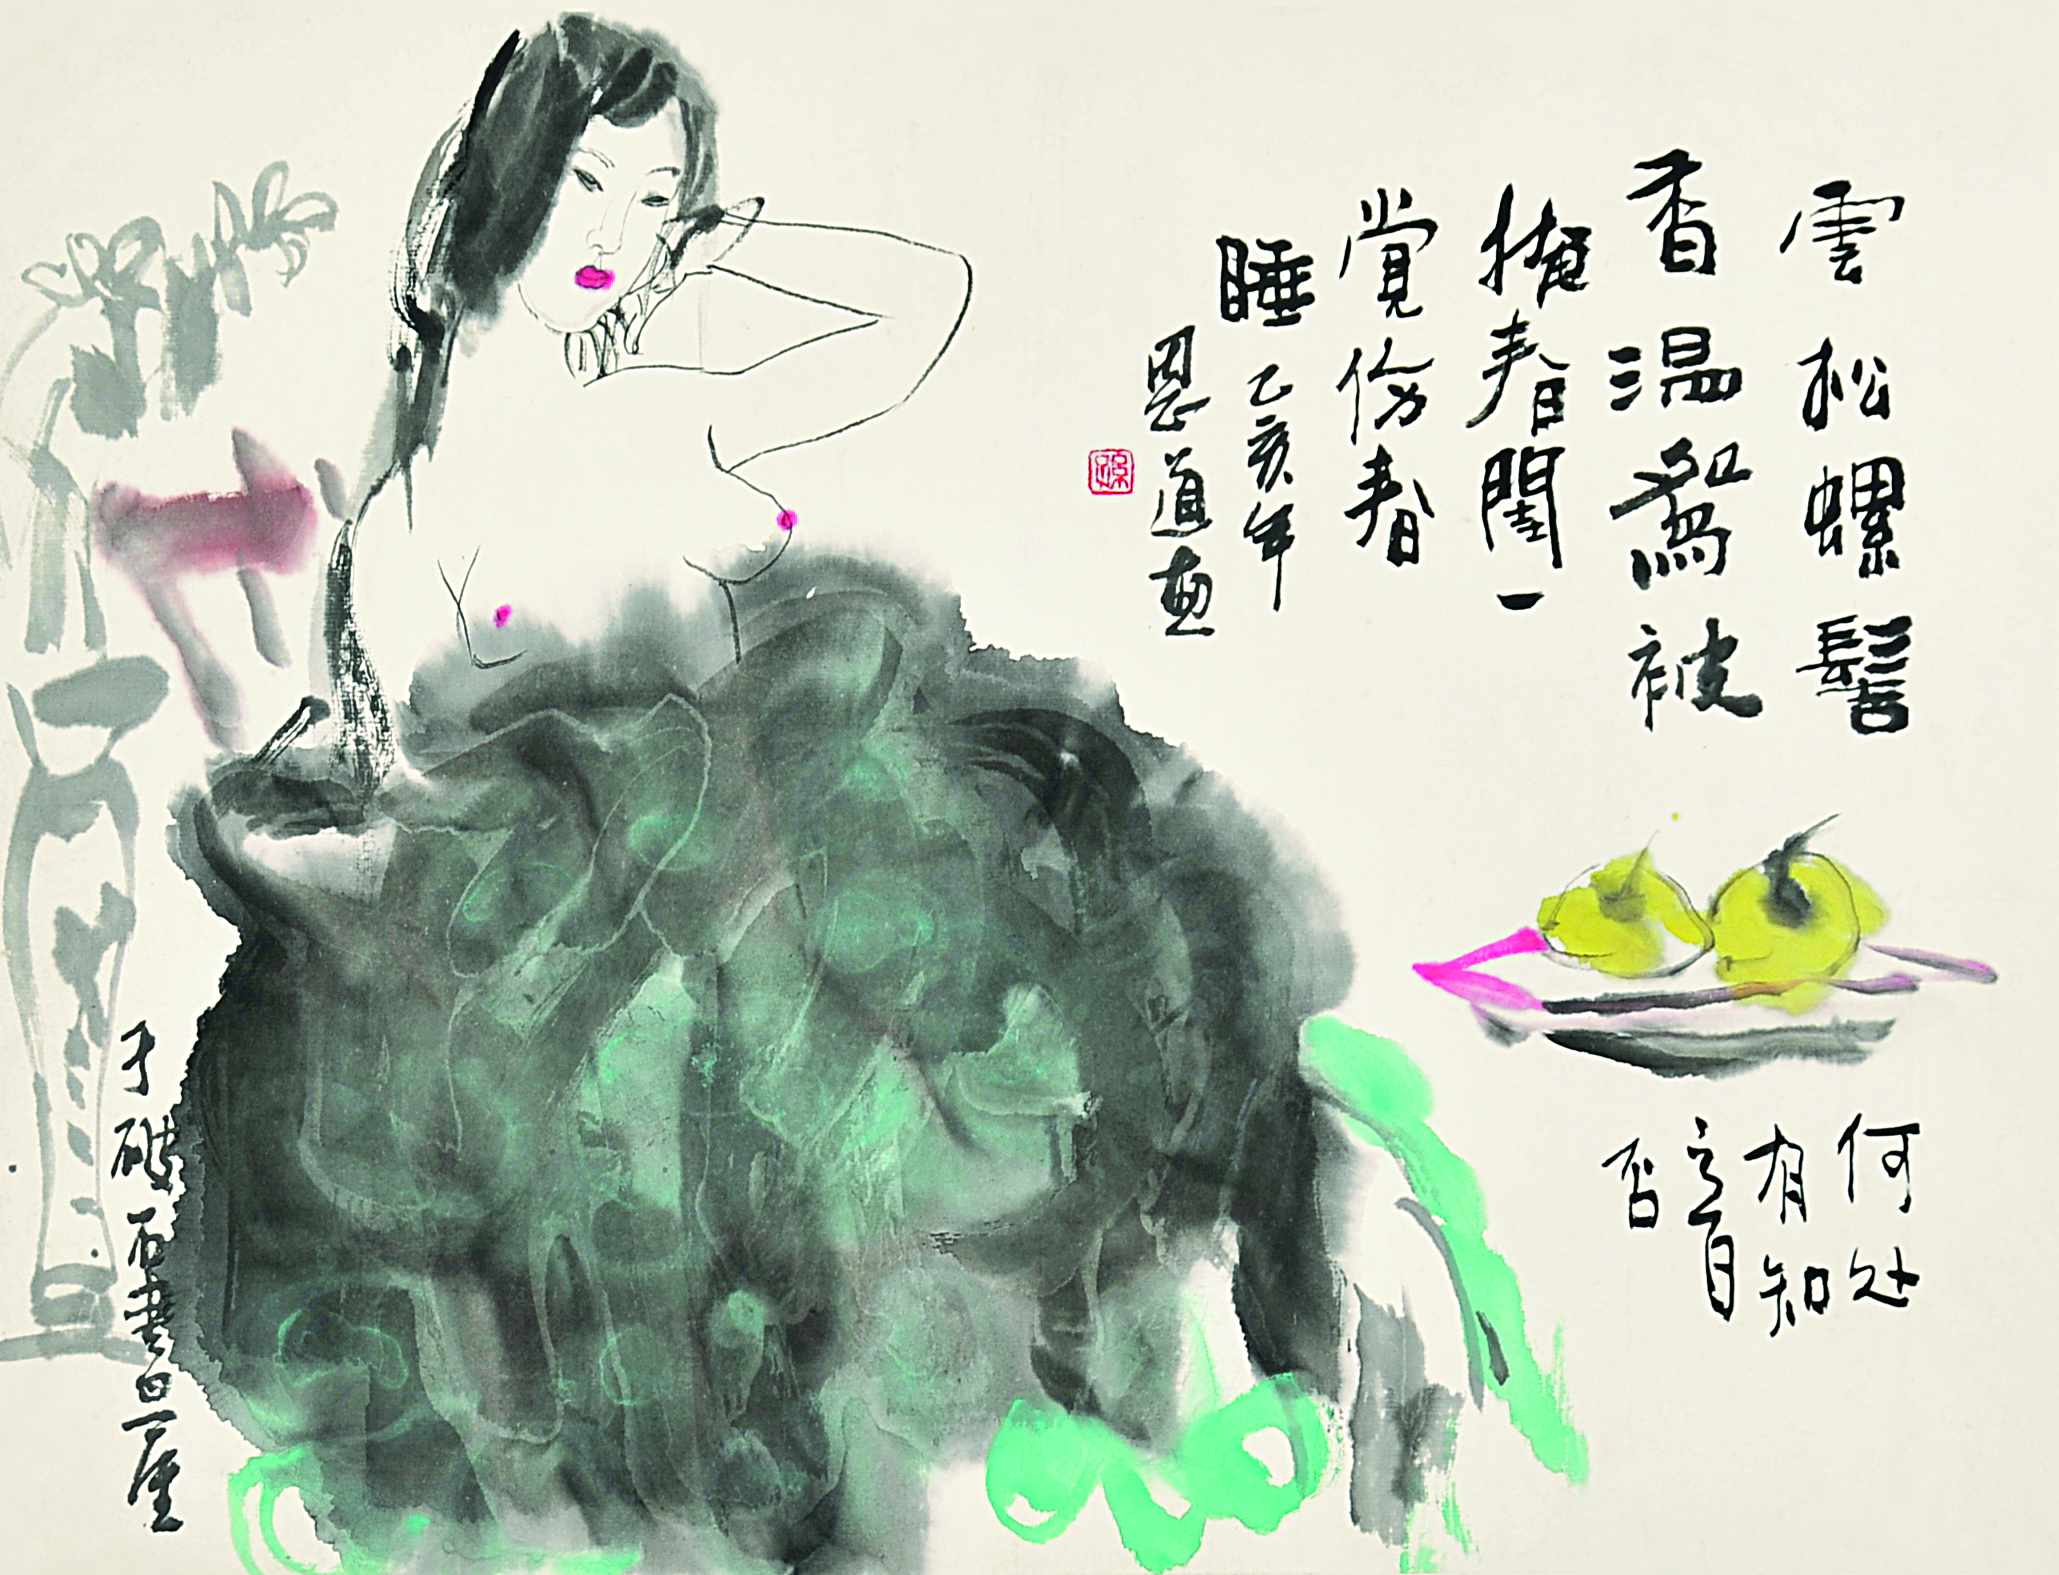 雲松螺髻
香温鴛被
掩春閨一
覚傷春
睡 乙亥年
恩道画
何处
有知
音
否
于破石書屋